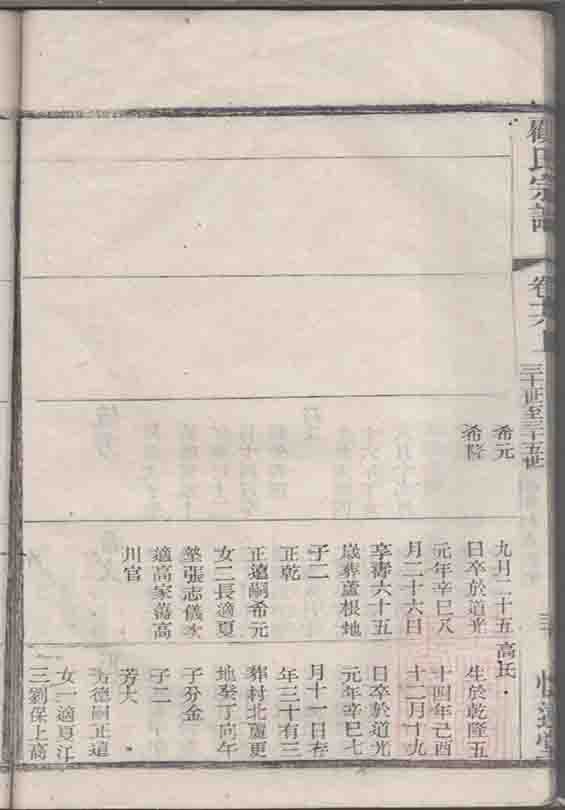 氏宗譜
卷六上
三十世至三十五世
希元
希隆
九月二十五
日卒於道光
元年辛巳八
月二十六日
享壽六十五
歲葬蘆根地
子二
正乾
正遠嗣希元
女二長適夏
墊張志儀次
適高家蕩高
川官
高氏
生於乾隆五
十四年己酉
十二月十九
日卒於道光
元年辛巳七
月十一日存
年三十有三
葬村北厫更
地癸丁向午
子分金
子二
芳大
芳德嗣正遠
女一適夏江
三劉保上高